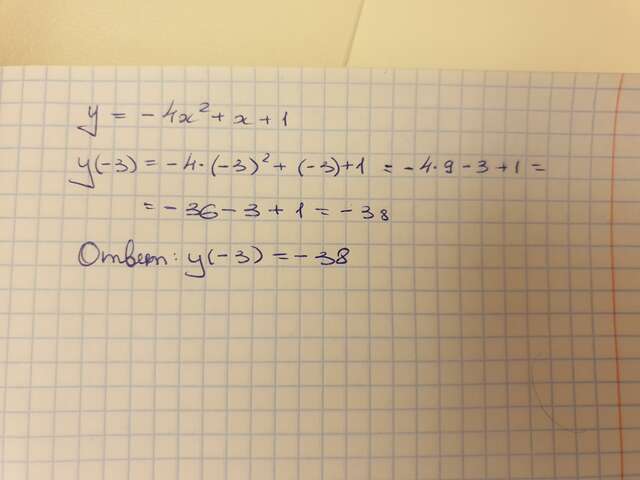 y = -4x² + x + 1
y(-3) = -4·(-3)² + (-3)+1 = -4·9 - 3 + 1 =
= -36 - 3 + 1 = -38
Ответ: y(-3) = -38